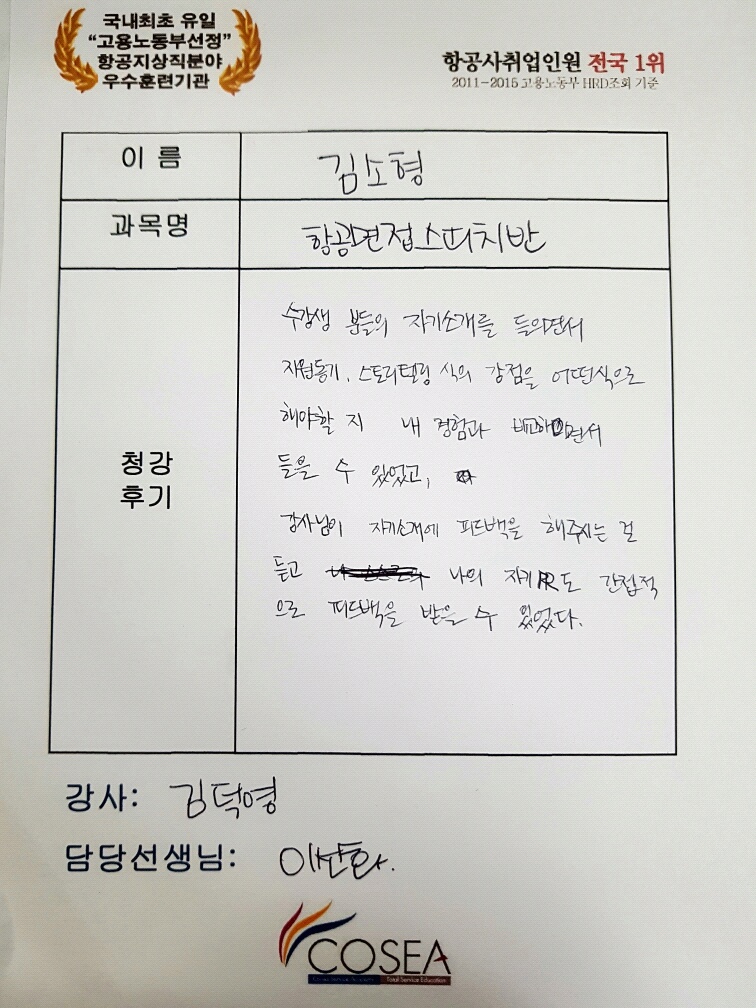 국내최초 유일
“고용노동부선정”
항공지상직분야
우수훈련기관
항공사취업인원 전국 1위
2011-2015 고용노동부 HRD조회 기준
이 름
김소형
과목명
항공면접스피치반
청강
후기
수강생 분들의 자기소개를 들으면서
지원동기, 스토리텔링 식의 강점을 어떤식으로
해야할 지 내 경험과 비교하면서
들을 수 있었고,
강사님이 자기소개에 피드백을 해주시는 걸
듣고 나의 자기PR도 간접적
으로 피드백을 받을 수 있었다.
강사: 김덕영
담당선생님: 이산화.
COSEA
Total Service Education